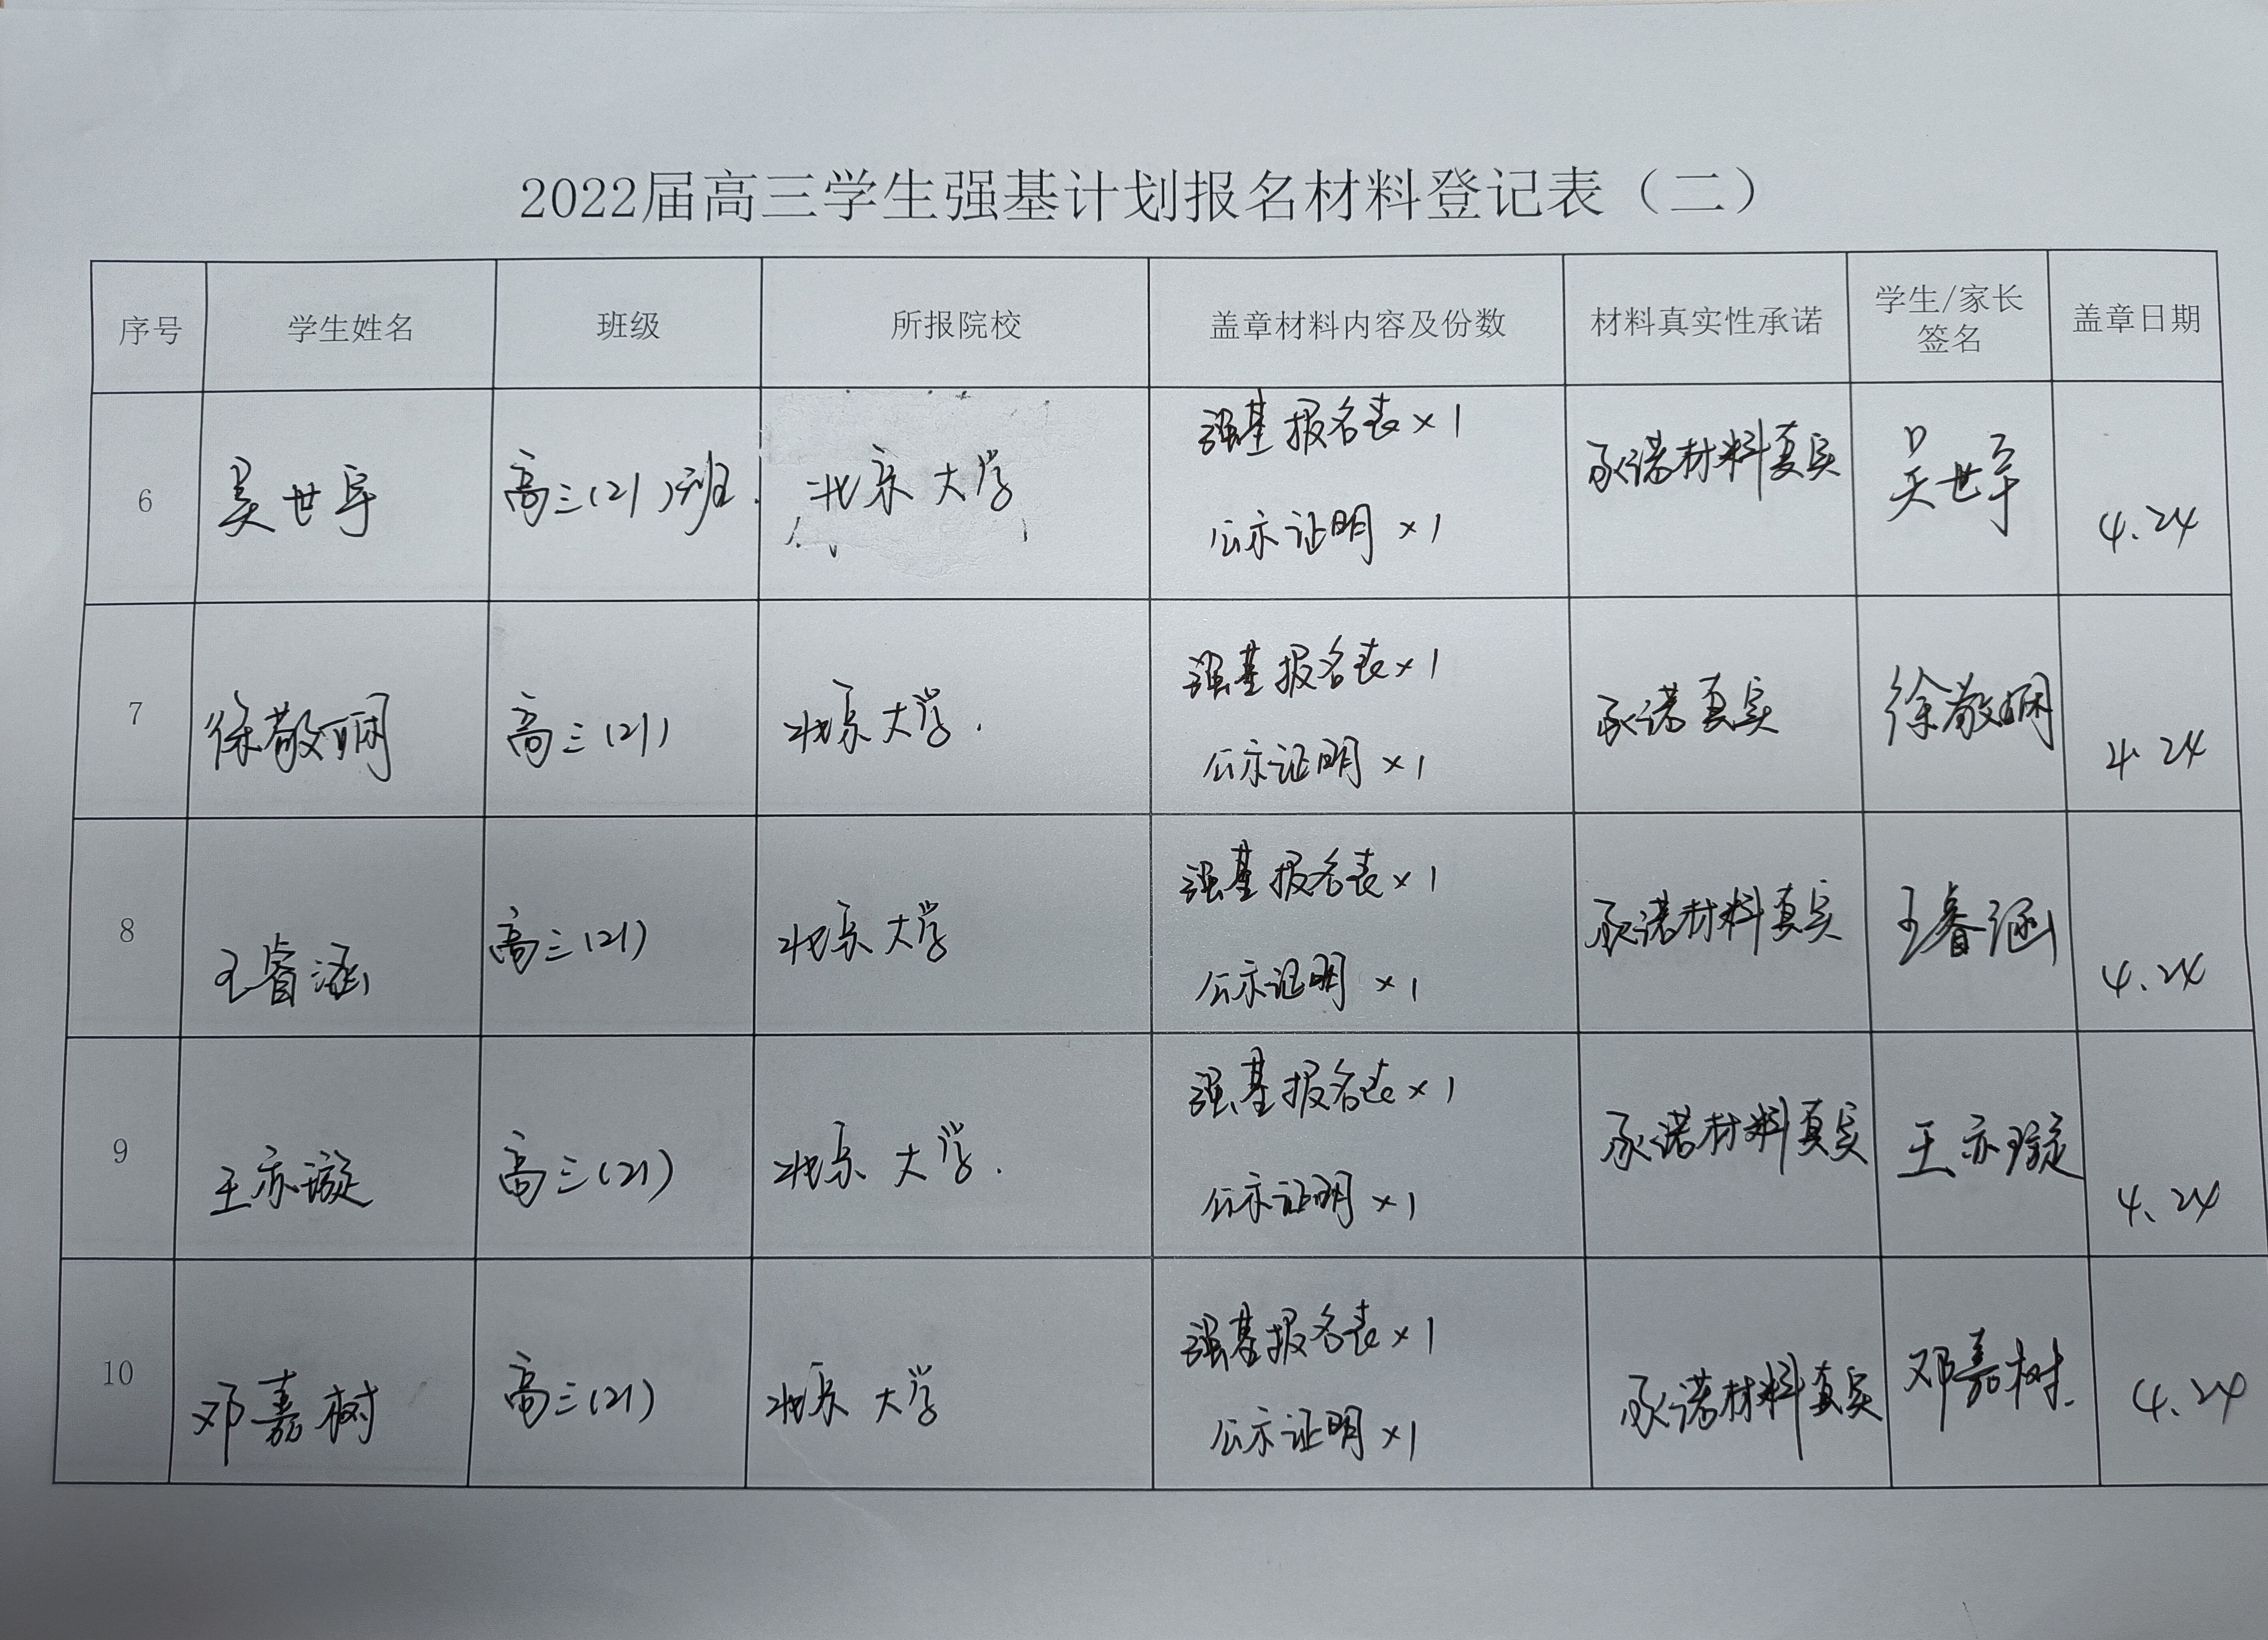 2022届高三学生强基计划报名材料登记表（二）
序号 学生姓名 班级 所报院校 盖章材料内容及份数 材料真实性承诺 学生/家长 盖章日期
签名
强基报名表×1
6 吴世宇 高三(21)班. 北京大学 承诺材料真实 吴世宇 4.24
公示证明×1
强基报名表×1
7 徐敬娴 高三(21) 北京大学. 承诺真实 徐敬娴 4.24
公示证明×1
强基报名表×1
8 王睿涵 高三(21) 北京大学 承诺材料真实 王睿涵 4.24
公示证明×1
强基报名表×1
9 王亦璇 高三(21) 北京大学. 承诺材料真实 王亦璇 4.24
公示证明×1
强基报名表×1
10 邓嘉树 高三(21) 北京大学 承诺材料真实 邓嘉树. 4.24
公示证明×1